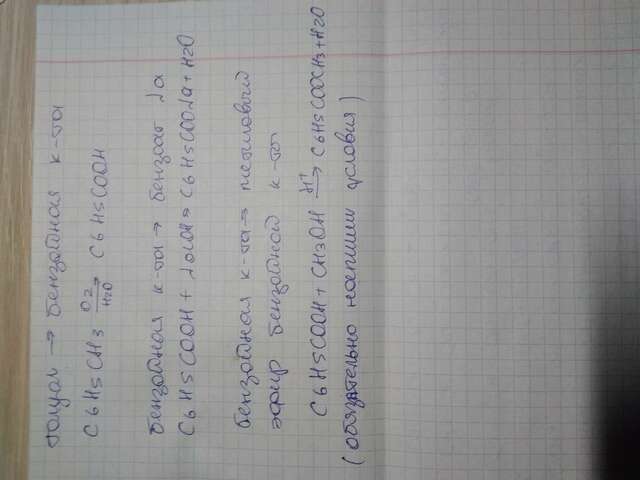 толуол → бензойная к-та
C6H5CH3 O2 → H2O C6H5COOH
бензойная к-та → бензоат Na
C6H5COOH + NaOH = C6H5COONa + H2O
бензойная к-та → метиловый
эфир бензойной к-ты
C6H5COOH + CH3OH H+ → C6H5COOCH3 + H2O
(обязательно напиши условия)